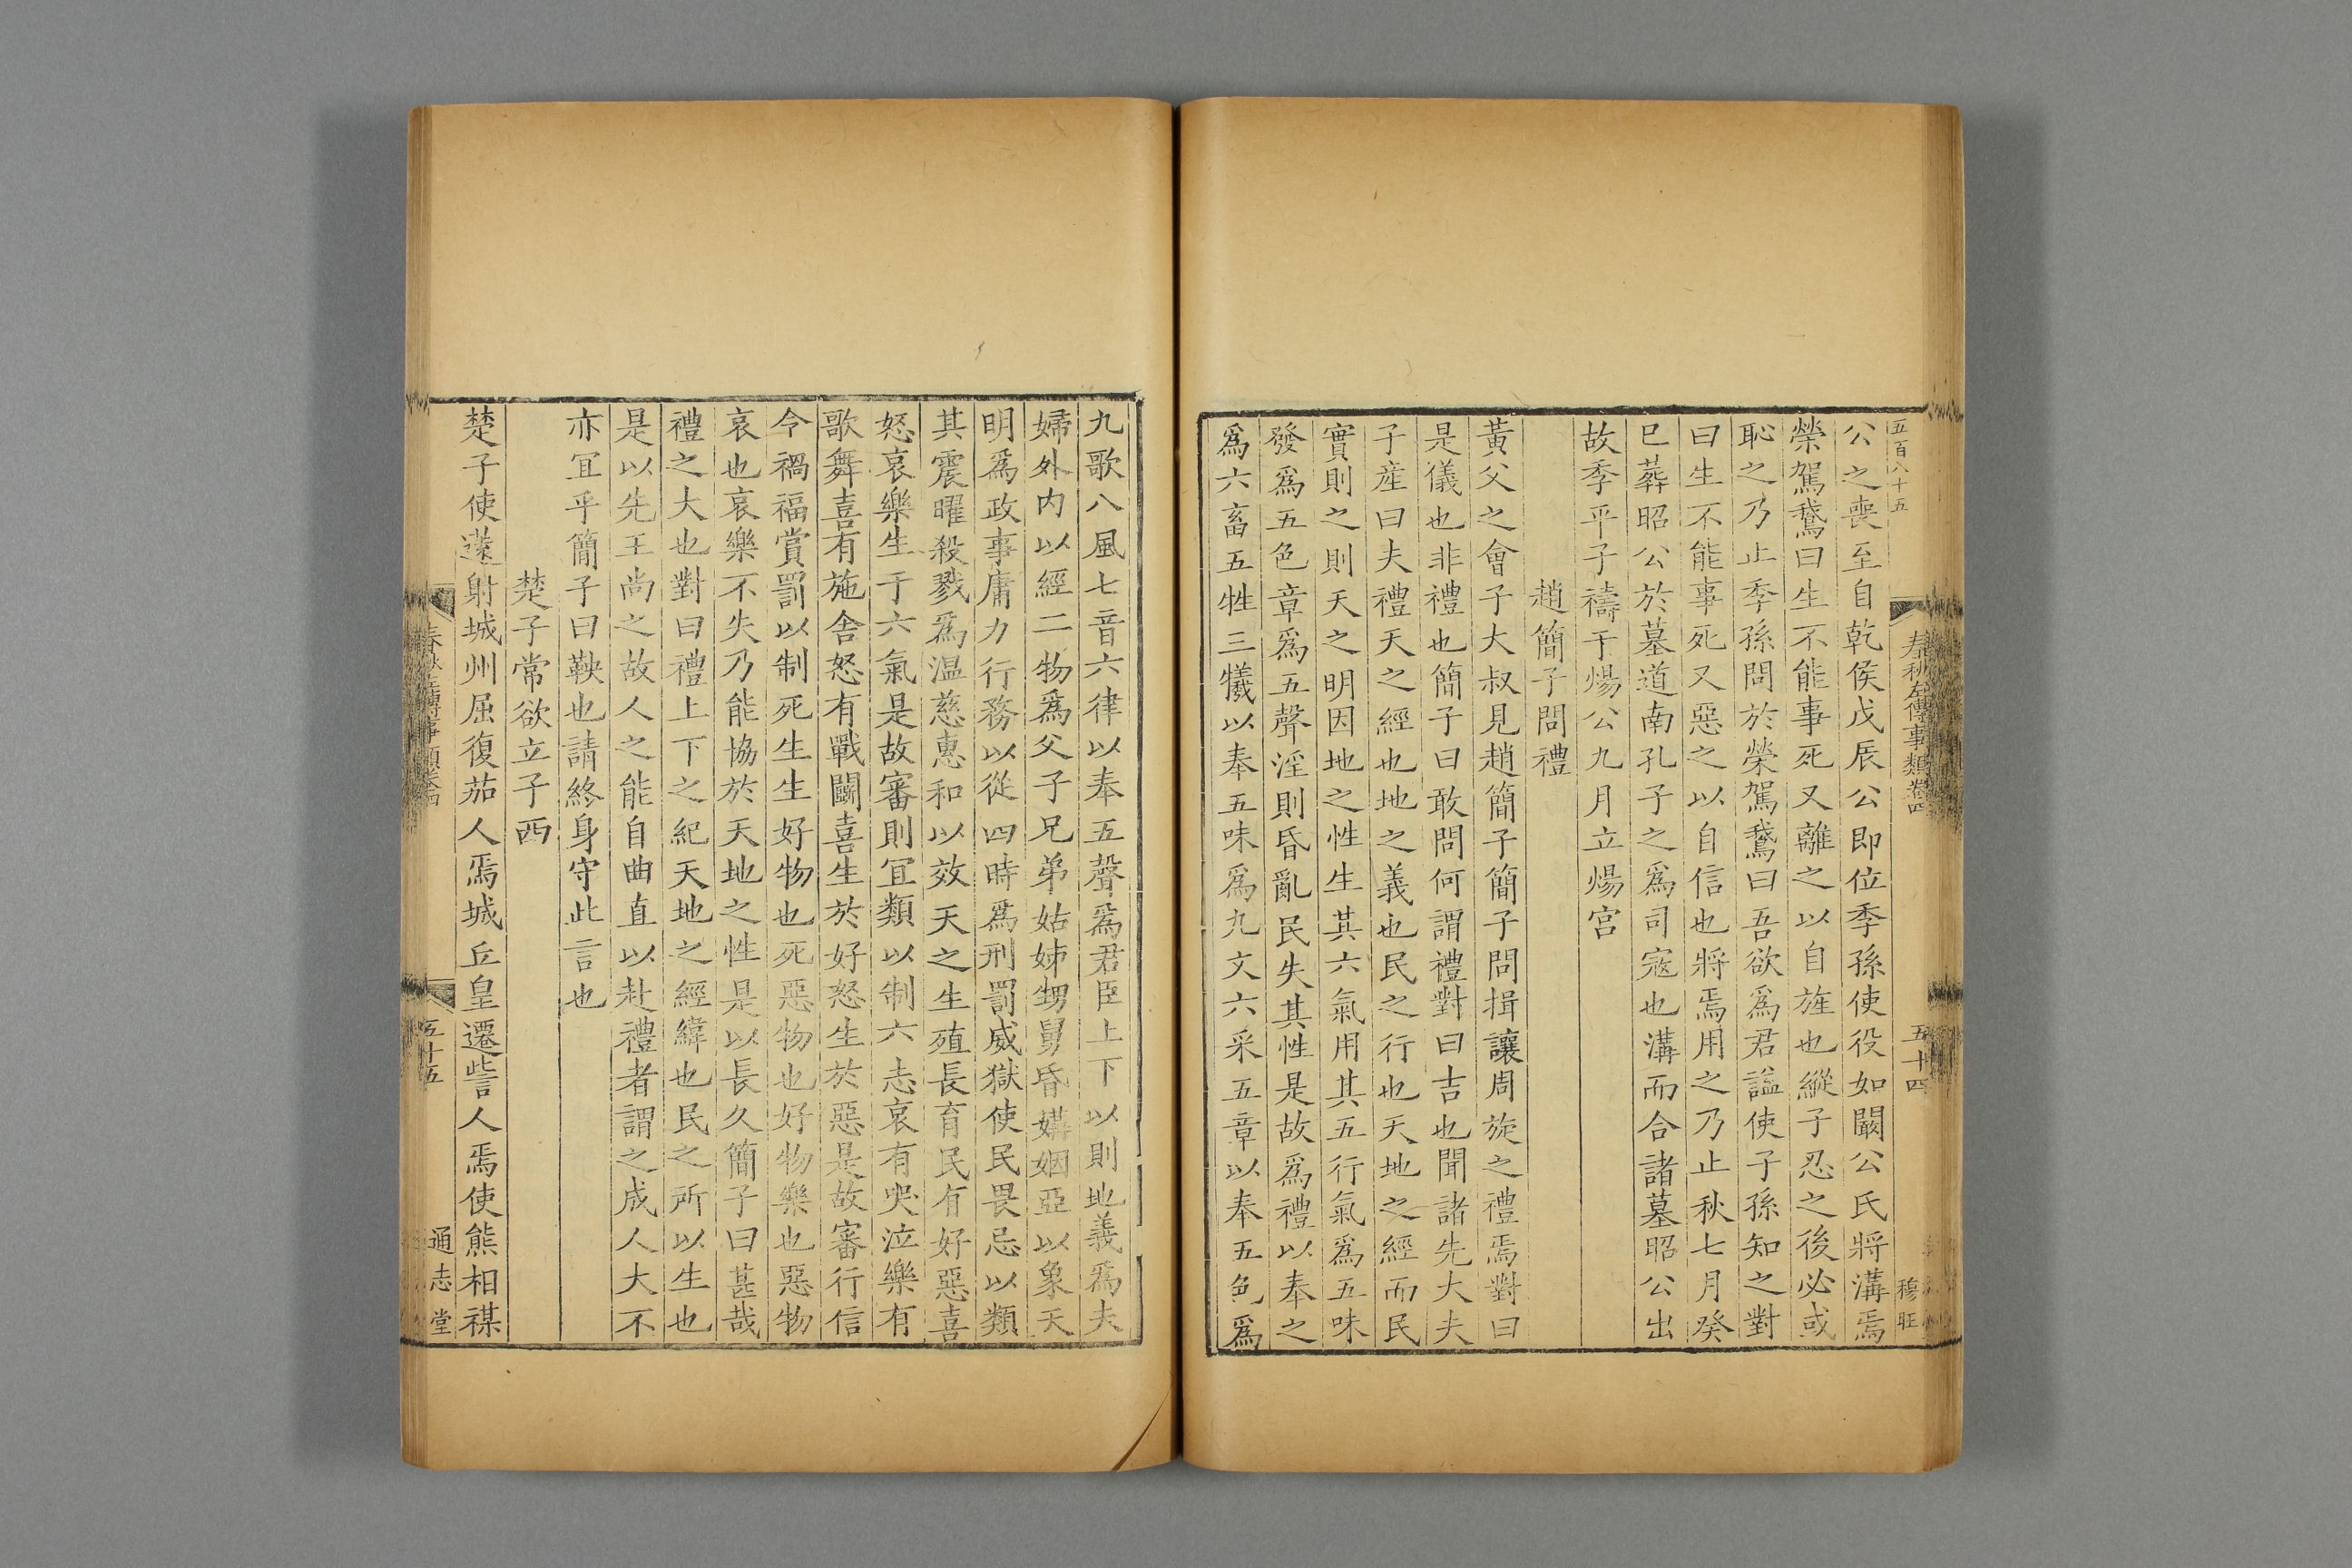 五百八十五
春秋左傳事類卷四
五十四
穆旺
公之喪至自乾侯戊辰公即位季孫使役如闞公氏將溝焉
榮駕鵞曰生不能事死又離之以自旌也縱子忍之後必或
恥之乃止季孫問於榮駕鵞曰吾欲爲君謚使子孫知之對
曰生不能事死又惡之以自信也將焉用之乃止秋七月癸
巳葬昭公於墓道南孔子之爲司寇也溝而合諸墓昭公出
故季平子禱于煬公九月立煬宮
趙簡子問禮
黃父之會子大叔見趙簡子簡子問揖讓周旋之禮焉對曰
是儀也非禮也簡子曰敢問何謂禮對曰吉也聞諸先大夫
子產曰夫禮天之經也地之義也民之行也天地之經而民
實則之則天之明因地之性生其六氣用其五行氣爲五味
發爲五色章爲五聲淫則昏亂民失其性是故爲禮以奉之
爲六畜五牲三犧以奉五味爲九文六采五章以奉五色爲
九歌八風七音六律以奉五聲爲君臣上下以則地義爲夫
婦外内以經二物爲父子兄弟姑姊甥舅昏媾姻亞以象天
明爲政事庸力行務以從四時爲刑罰威獄使民畏忌以類
其震曜殺戮爲温慈惠和以效天之生殖長育民有好惡喜
怒哀樂生于六氣是故審則宜類以制六志哀有哭泣樂有
歌舞喜有施舍怒有戰鬭喜生於好怒生於惡是故審行信
令禍福賞罰以制死生生好物也死惡物也好物樂也惡物
哀也哀樂不失乃能協於天地之性是以長久簡子曰甚哉
禮之大也對曰禮上下之紀天地之經緯也民之所以生也
是以先王尚之故人之能自曲直以赴禮者謂之成人大不
亦宜乎簡子曰鞅也請終身守此言也
楚子常欲立子西
楚子使薳射城州屈復茄人焉城丘皇遷訾人焉使熊相禖
春秋左傳事類卷四
五十五
通志堂